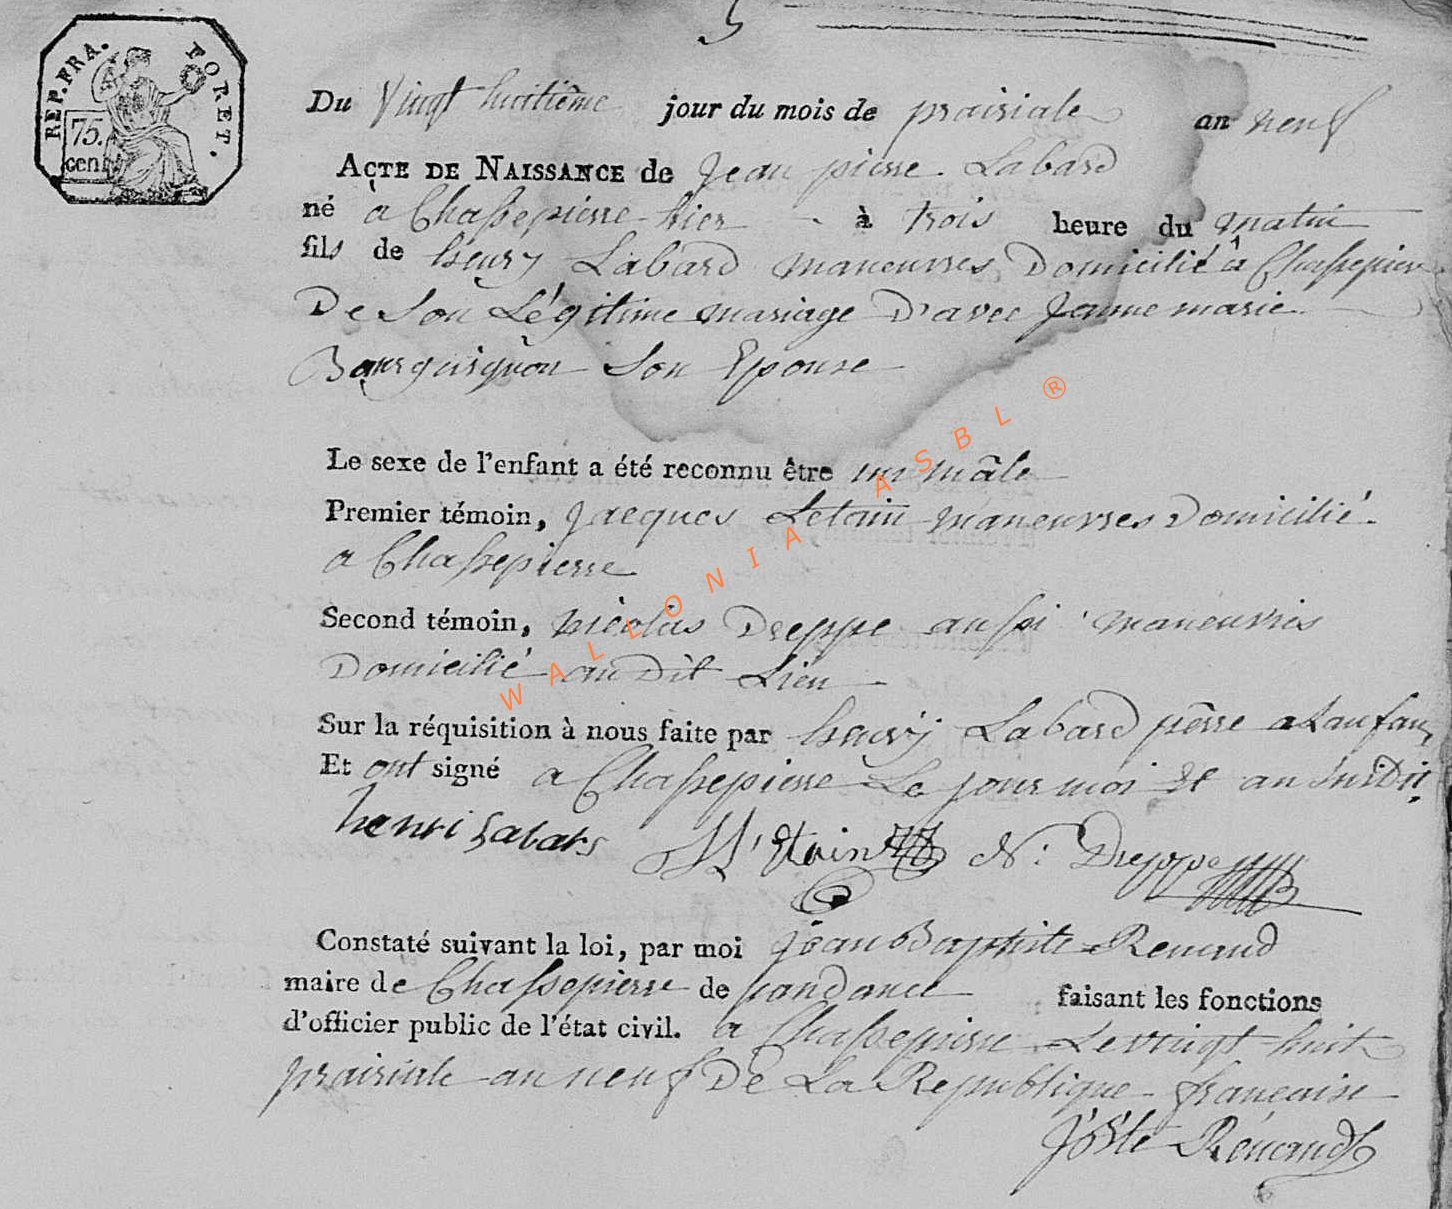 5
REP. FRA. FORET.
75. cent
Du Vingt huitième jour du mois de prairiale an neuf
ACTE DE NAISSANCE de Jean pierre Labard
né à Chassepierre hier à trois heure du matin
fils de henry Labard maneuvres Domicilié à Chassepierre
De Son Légitime mariage D'avec Jeanne marie
Bourguignon Son Epouse
Le sexe de l'enfant a été reconnu être un mâle
Premier témoin, Jacques Letain maneuvres Domicilié
a Chassepierre
Second témoin, nicolas Dreppe aussi maneuvres
Domicilié audit Lieu
Sur la réquisition à nous faite par henry Labard père a Lanfan
Et ont signé a Chassepierre Le jour moi et an susdit.
henri Labars L'Etain N: Dreppe
Constaté suivant la loi, par moi jean Baptiste Renaud
maire de Chassepierre de faisant les fonctions
d'officier public de l'état civil. a Chassepierre Le vingt huit
prairiale an neuf De La Republique francaise
JBte Rénaud
WALLONIA ASBL ®